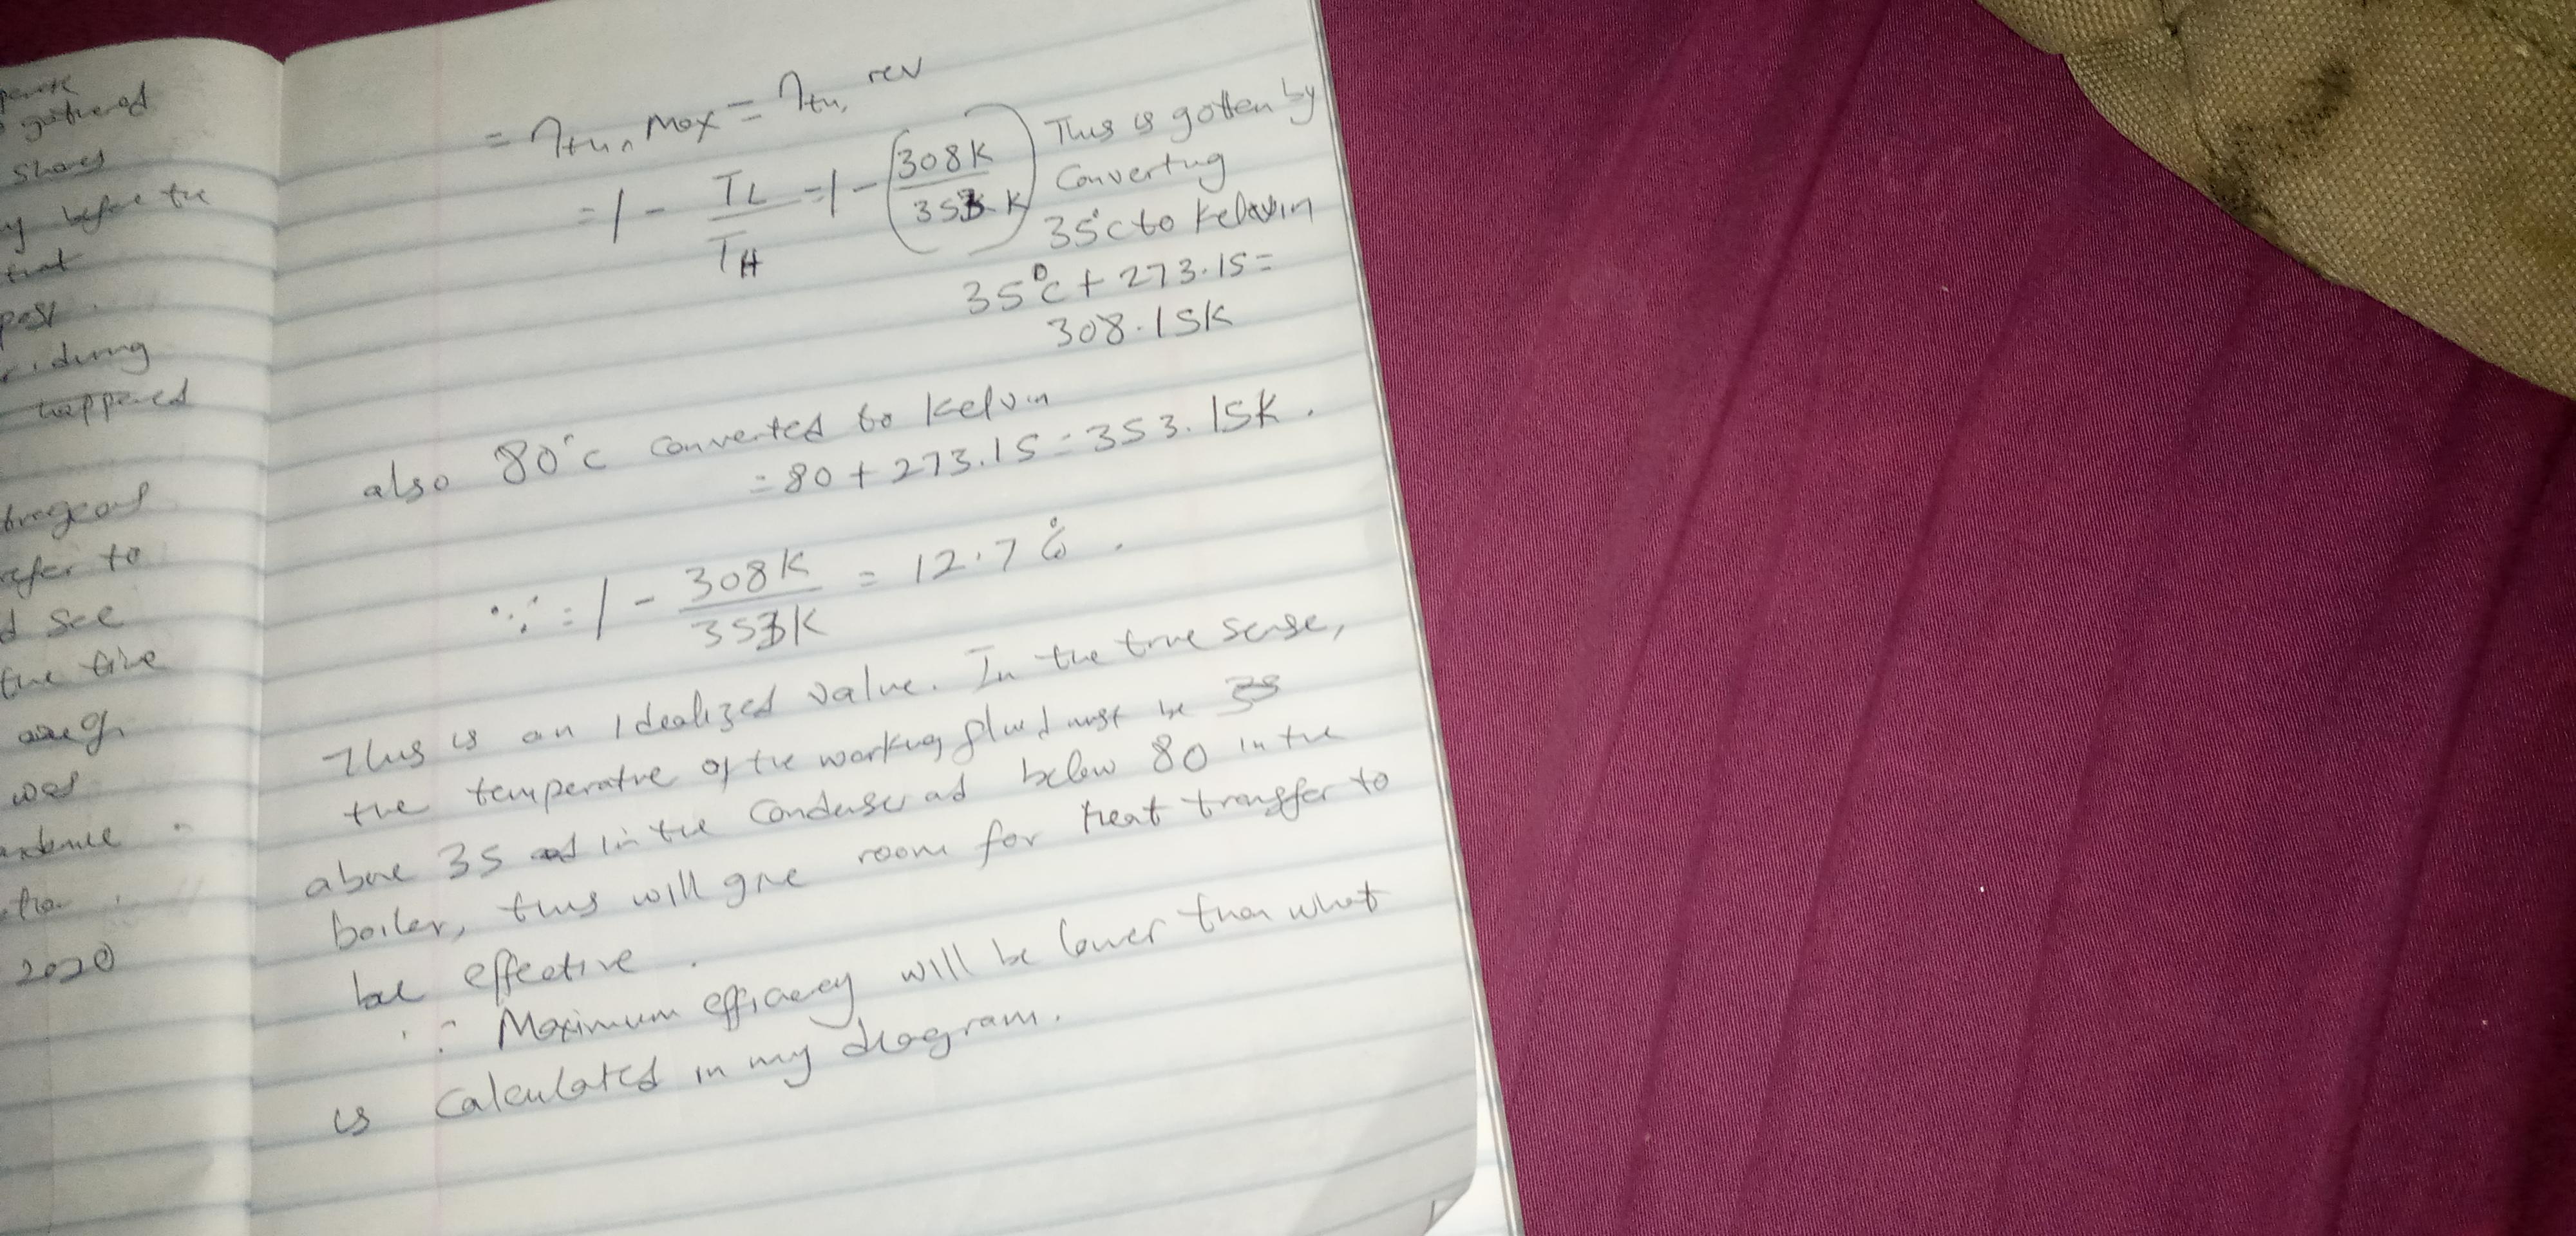 perate
gathered
shoes
y before the
that
post.
riding
happened
refer to
d see
the tire
was
2020
= ηth, Max = ηth, rev
= 1 - TL/TH = 1 - (308K/353K) This is gotten by
Converting
35°c to Kelvin
35°c + 273.15 =
308.15K
also 80°c converted to Kelvin
= 80 + 273.15 = 353.15K.
∵ = 1 - 308K/353K = 12.7%.
This is an idealized value. In the true sense,
the temperatre of the working fluid must be
above 35 in the Condenser and below 80 in the
boiler, this will give room for heat transfer to
be effective.
∴ Maximum efficiency will be lower than what
is calculated in my diagram.